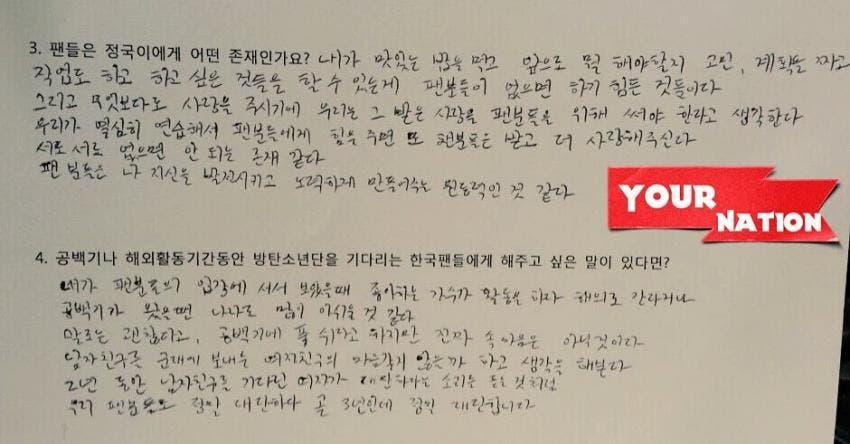 3. 팬들은 정국이에게 어떤 존재인가요? 내가 맛있는 밥을 먹고 앞으로 뭘 해야할지 고민, 계획을 짜고
작업도 하고 하고 싶은 것들을 할 수 있는게 팬분들이 없으면 하기 힘든 것들이다
그리고 무엇보다도 사랑을 주시기에 우리는 그 받은 사랑을 팬분들을 위해 써야 한다고 생각한다
우리가 열심히 연습해서 팬분들에게 힘을 주면 또 팬분들은 받고 더 사랑해주신다
서로 서로 없으면 안 되는 존재 같다
팬분들은 나 자신을 발전시키고 노력하게 만들어주는 원동력인 것 같다
YOUR
NATION
4. 공백기나 해외활동기간동안 방탄소년단을 기다리는 한국팬들에게 해주고 싶은 말이 있다면?
내가 팬분들의 입장에 서서 보았을때 좋아하는 가수가 활동을 하다 해외로 간다거나
공백기가 왔을땐 나라도 많이 아쉬울 것 같다
말로는 괜찮다고, 공백기에 푹 쉬라고 하지만 진짜 속마음은 아닐것이다
남자친구를 군대에 보내는 여자친구의 마음같지 않을까 하고 생각을 해본다
2년 동안 남자친구를 기다린 여자가 대단하다는 소리를 듣는 것처럼
우리 팬분들도 정말 대단하다 곧 3년인데 정말 대단합니다